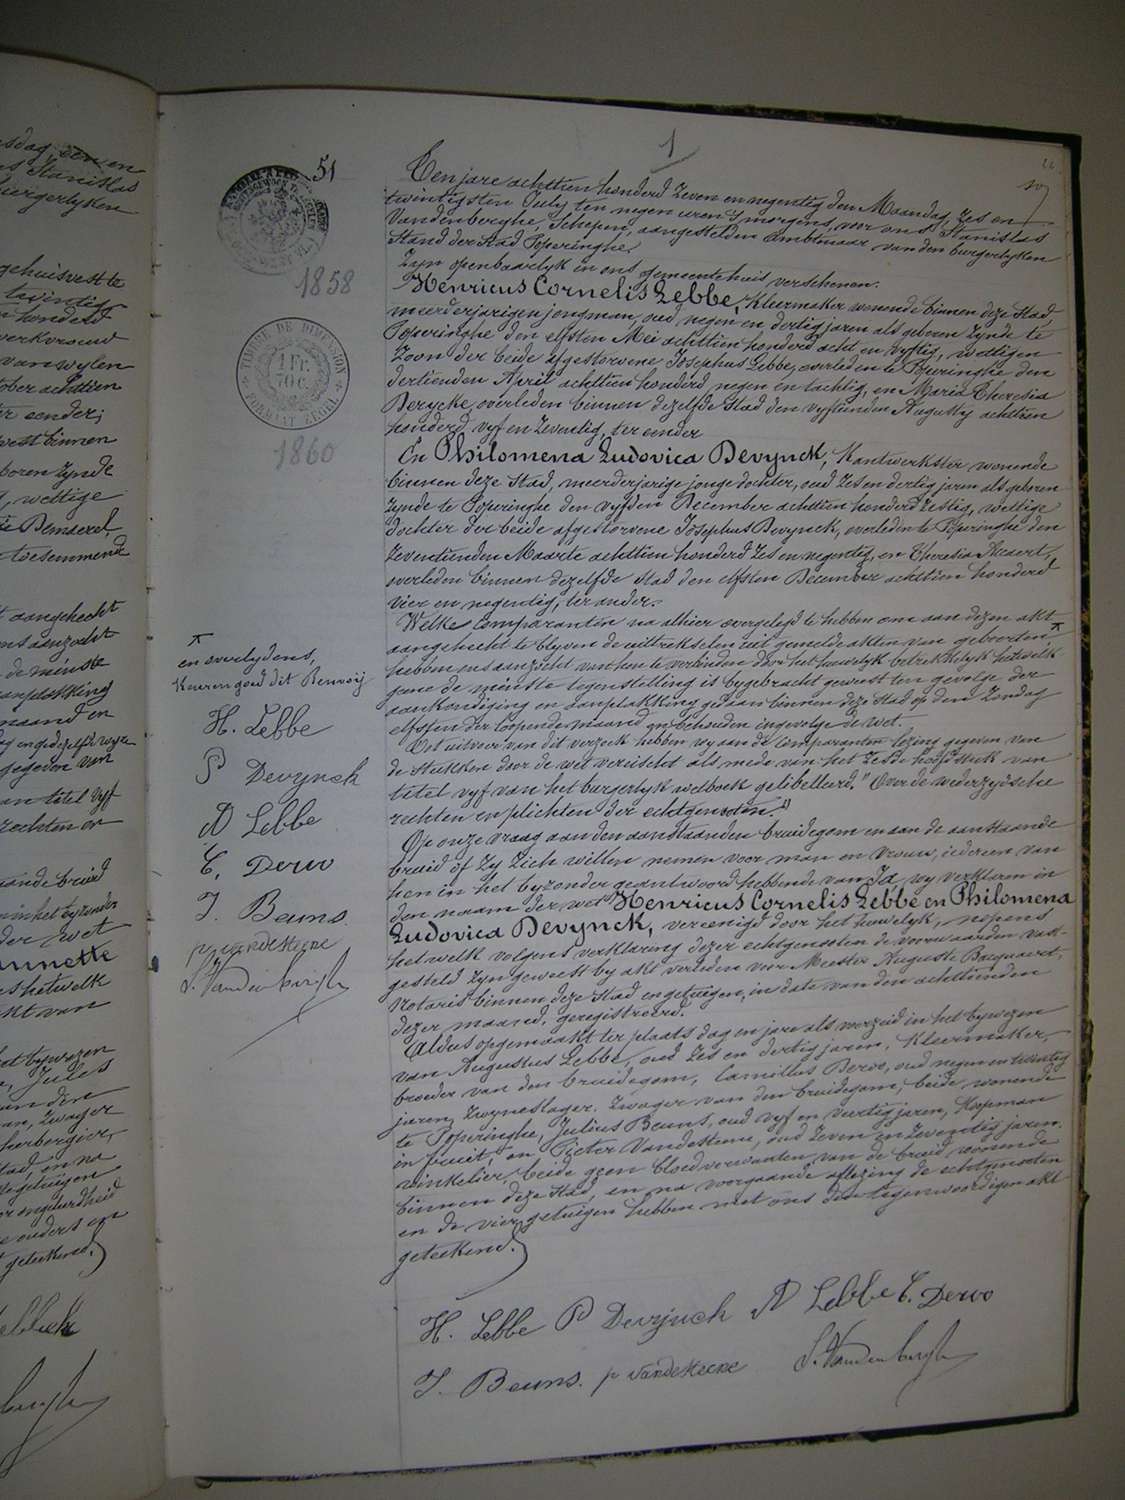 1
51
Ten jare achttien honderd Zeven en negentig den Maandag, Zes en
twintigsten July ten negen uren 's morgens, voor ons Stanislas
Vandenberghe, Schepen, aangestelden Ambtenaar van den burgerlyken
Stand der Stad Poperinghe
Zyn openbaarlyk in ons gemeentehuis verschenen.
Henricus Cornelis Lebbe, Kleermaker wonende binnen deze Stad
meerderjarigen jongman, oud negen en dertig jaren als geboren Zynde te
Poperinghe den elfsten Mei achttien honderd acht en vyftig, wettigen
Zoon der beide afgestorvene Josephus Lebbe, overleden te Poperinghe den
dertienden April achttien honderd negen en tachtig, en Maria Theresia
Derycke, overleden binnen dezelfde Stad den vyftienden Augusty achttien
honderd vyf en Zeventig, ter eender
En Philomena Ludovica Devynck, Kantwerkster wonende
binnen deze Stad, meerderjarige jonge dochter, oud Zes en dertig jaren als geboren
Zynde te Poperinghe den vyfden December achttien honderd Zestig, wettige
dochter der beide afgestorvene Josephus Devynck, overleden te Poperinghe den
Zeventienden Maarte achttien honderd Zes en negentig, en Theresia
overleden binnen dezelfde Stad den elfsten December achttien honderd
vier en negentig, ter ander.
Welke Comparanten na alhier overgelegd te hebben om aan dezen akt
aangehecht te blyven de uittrekselen uit gemelde akten van geboorten
hebben ons aanzocht van hen te verbinden door het houwelyk betrekkelyk hetwelk
gene de minste tegenstelling is bygebracht geweest ten gevolge der
aankondiging en aanplakking gedaan binnen deze Stad op den Zondag
elfsten der loopende maand onbehouden ingevolge de wet.
Tot uitvoer van dit verzoek hebben wy aan de Comparanten lezing gegeven van
de stukken door de wet vereischt als mede van het Zesde hoofdstuk van
titel vyf van het burgerlyk wetboek gelibelleerd "Over de wederzydsche
rechten en plichten der echtgenoten"
Op onze vraag aan den aanstaanden bruidegom en aan de aanstaande
bruid of Zy Zich willen nemen voor man en vrouw, iedereen van
hen in het byzonder geantwoord hebbende van Ja, wy verklaren in
den naam der wet Henricus Cornelis Lebbe en Philomena
Ludovica Devynck, vereenigd door het houwelyk, nopens
hetwelk volgens verklaring dezer echtgenoten de voorwaarden vast-
gesteld Zyn geweest by akt verleden voor Meester Auguste
Notaris binnen deze Stad en getuigen, in date van den achttienden
dezer maand, geregistreerd.
Aldus opgemaakt ter plaats dag en jare als voorzeid in het bywezen
van Augustus Lebbe, oud Zes en dertig jaren, Kleermaker,
broeder van den bruidegom, Camillus Dervo, oud negen en twintig
jaren, Zwynslager, Zwager van den bruidegom, beide wonende
te Poperinghe, Julius Beuns, oud vyf en veertig jaren, Koopman
in fruit, en Pieter Vandesteene, oud Zeven en Zeventig jaren
winkelier, beide geen bloedverwanten van de bruid, wonende
binnen deze Stad, en na voorgaande aflezing de echtgenoten
en de vier getuigen hebben met ons den tegenwoordigen akt
geteekend.
H. Lebbe P Devynck A Lebbe C. Dervo
J. Beuns. p vandesteene S. Vandenberghe
1858
TIMBRE DE DIMENSION
1 Fr.
70 c.
FORMAT LEGAL
1860
en overlydens,
Keuren goed dit Renvooi
H. Lebbe
P Devynck
A Lebbe
C. Dervo
J. Beuns.
p vandesteene
S. Vandenberghe